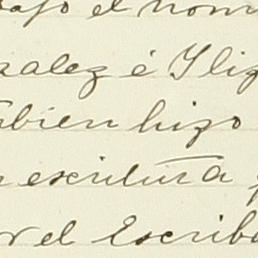 bajo el nom
zalez é Iliz
tambien hizo
escritura
el Escriba